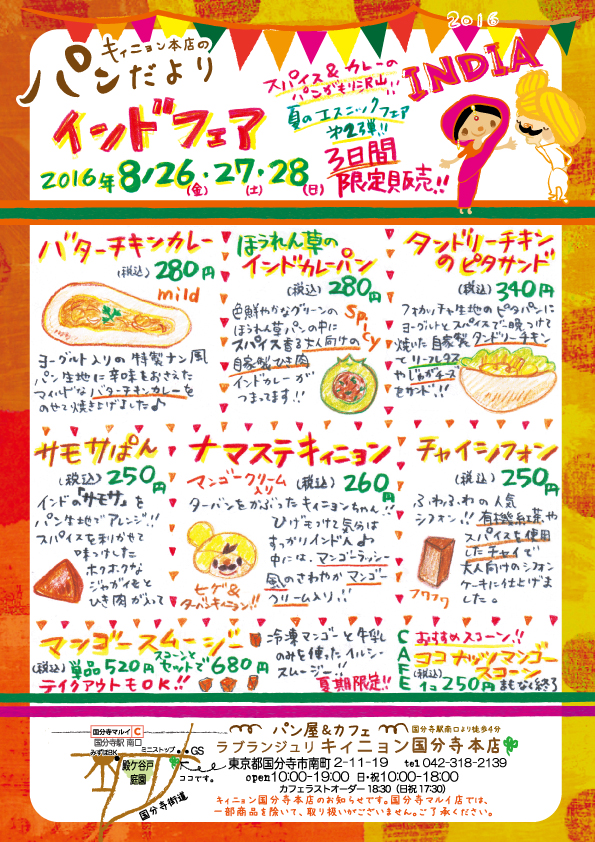 キィニョン本店の
パンだより
2016
INDIA
スパイス&カレーの
パンがもり沢山!!
インドフェア
夏のエスニックフェア
第2弾!!
2016年8/26・27・28
(金) (土) (日)
3日間
限定販売!!
バターチキンカレー
(税込) 280円
mild
ヨーグルト入りの特製ナン風
パン生地に辛味をおさえた
マイルドなバターチキンカレーを
のせて焼き上げました♪
ほうれん草の
インドカレーパン
(税込) 280円
Spicy
色鮮やかなグリーンの
ほうれん草パンの中に
スパイス香る大人向けの
自家製ひき肉
インドカレーが
つまってます!!
タンドリーチキン
のピタサンド
(税込) 340円
フォカッチャ生地のピタパンに
ヨーグルトとスパイスで一晩つけて
焼いた自家製タンドリーチキン
とリーフレタス
やじゃがチーズ
をサンド!!
サモサぱん
(税込) 250円
インドの「サモサ」を
パン生地でアレンジ!!
スパイスを利かせて
味つけした
ホクホクな
ジャガイモと
ひき肉が入って
ナマステキィニョン
マンゴークリーム
入り (税込) 260円
ターバンをかぶったキィニョンちゃん!!
ひげをつけて気分は
すっかりインド人♪
中には、マンゴーラッシー
風のさわやかマンゴー
クリーム入り!!
ヒゲ&
ターバンキィニョン!!
チャイシフォン
(税込) 250円
ふわふわの人気
シフォン!!有機紅茶や
スパイスを使用
したチャイで
大人向けのシフォン
ケーキに仕上げま
した。
フワフワ
マンゴースムージー
(税込) 単品520円 スコーンとセットで680円
テイクアウトもOK!!
冷凍マンゴーと牛乳
のみを使ったヘルシー
スムージー!!
夏期限定!!
CAFE
おすすめスコーン!!
ココナッツマンゴー
スコーン
(税込) 1コ250円 まもなく終了
国分寺マルイ C
国分寺駅 南口
みずほBK
ミニストップ
GS
殿ケ谷戸
庭園
ココです。
国分寺街道
パン屋&カフェ
国分寺駅南口より徒歩4分
ラブランジュリ キィニョン国分寺本店
東京都国分寺市南町 2-11-19 tel 042-318-2139
open10:00-19:00 日・祝10:00-18:00
カフェラストオーダー 18:30 (日祝 17:30)
キィニョン国分寺本店のお知らせです。国分寺マルイ店では、
一部商品を除いて、取り扱いがございません。ご了承ください。